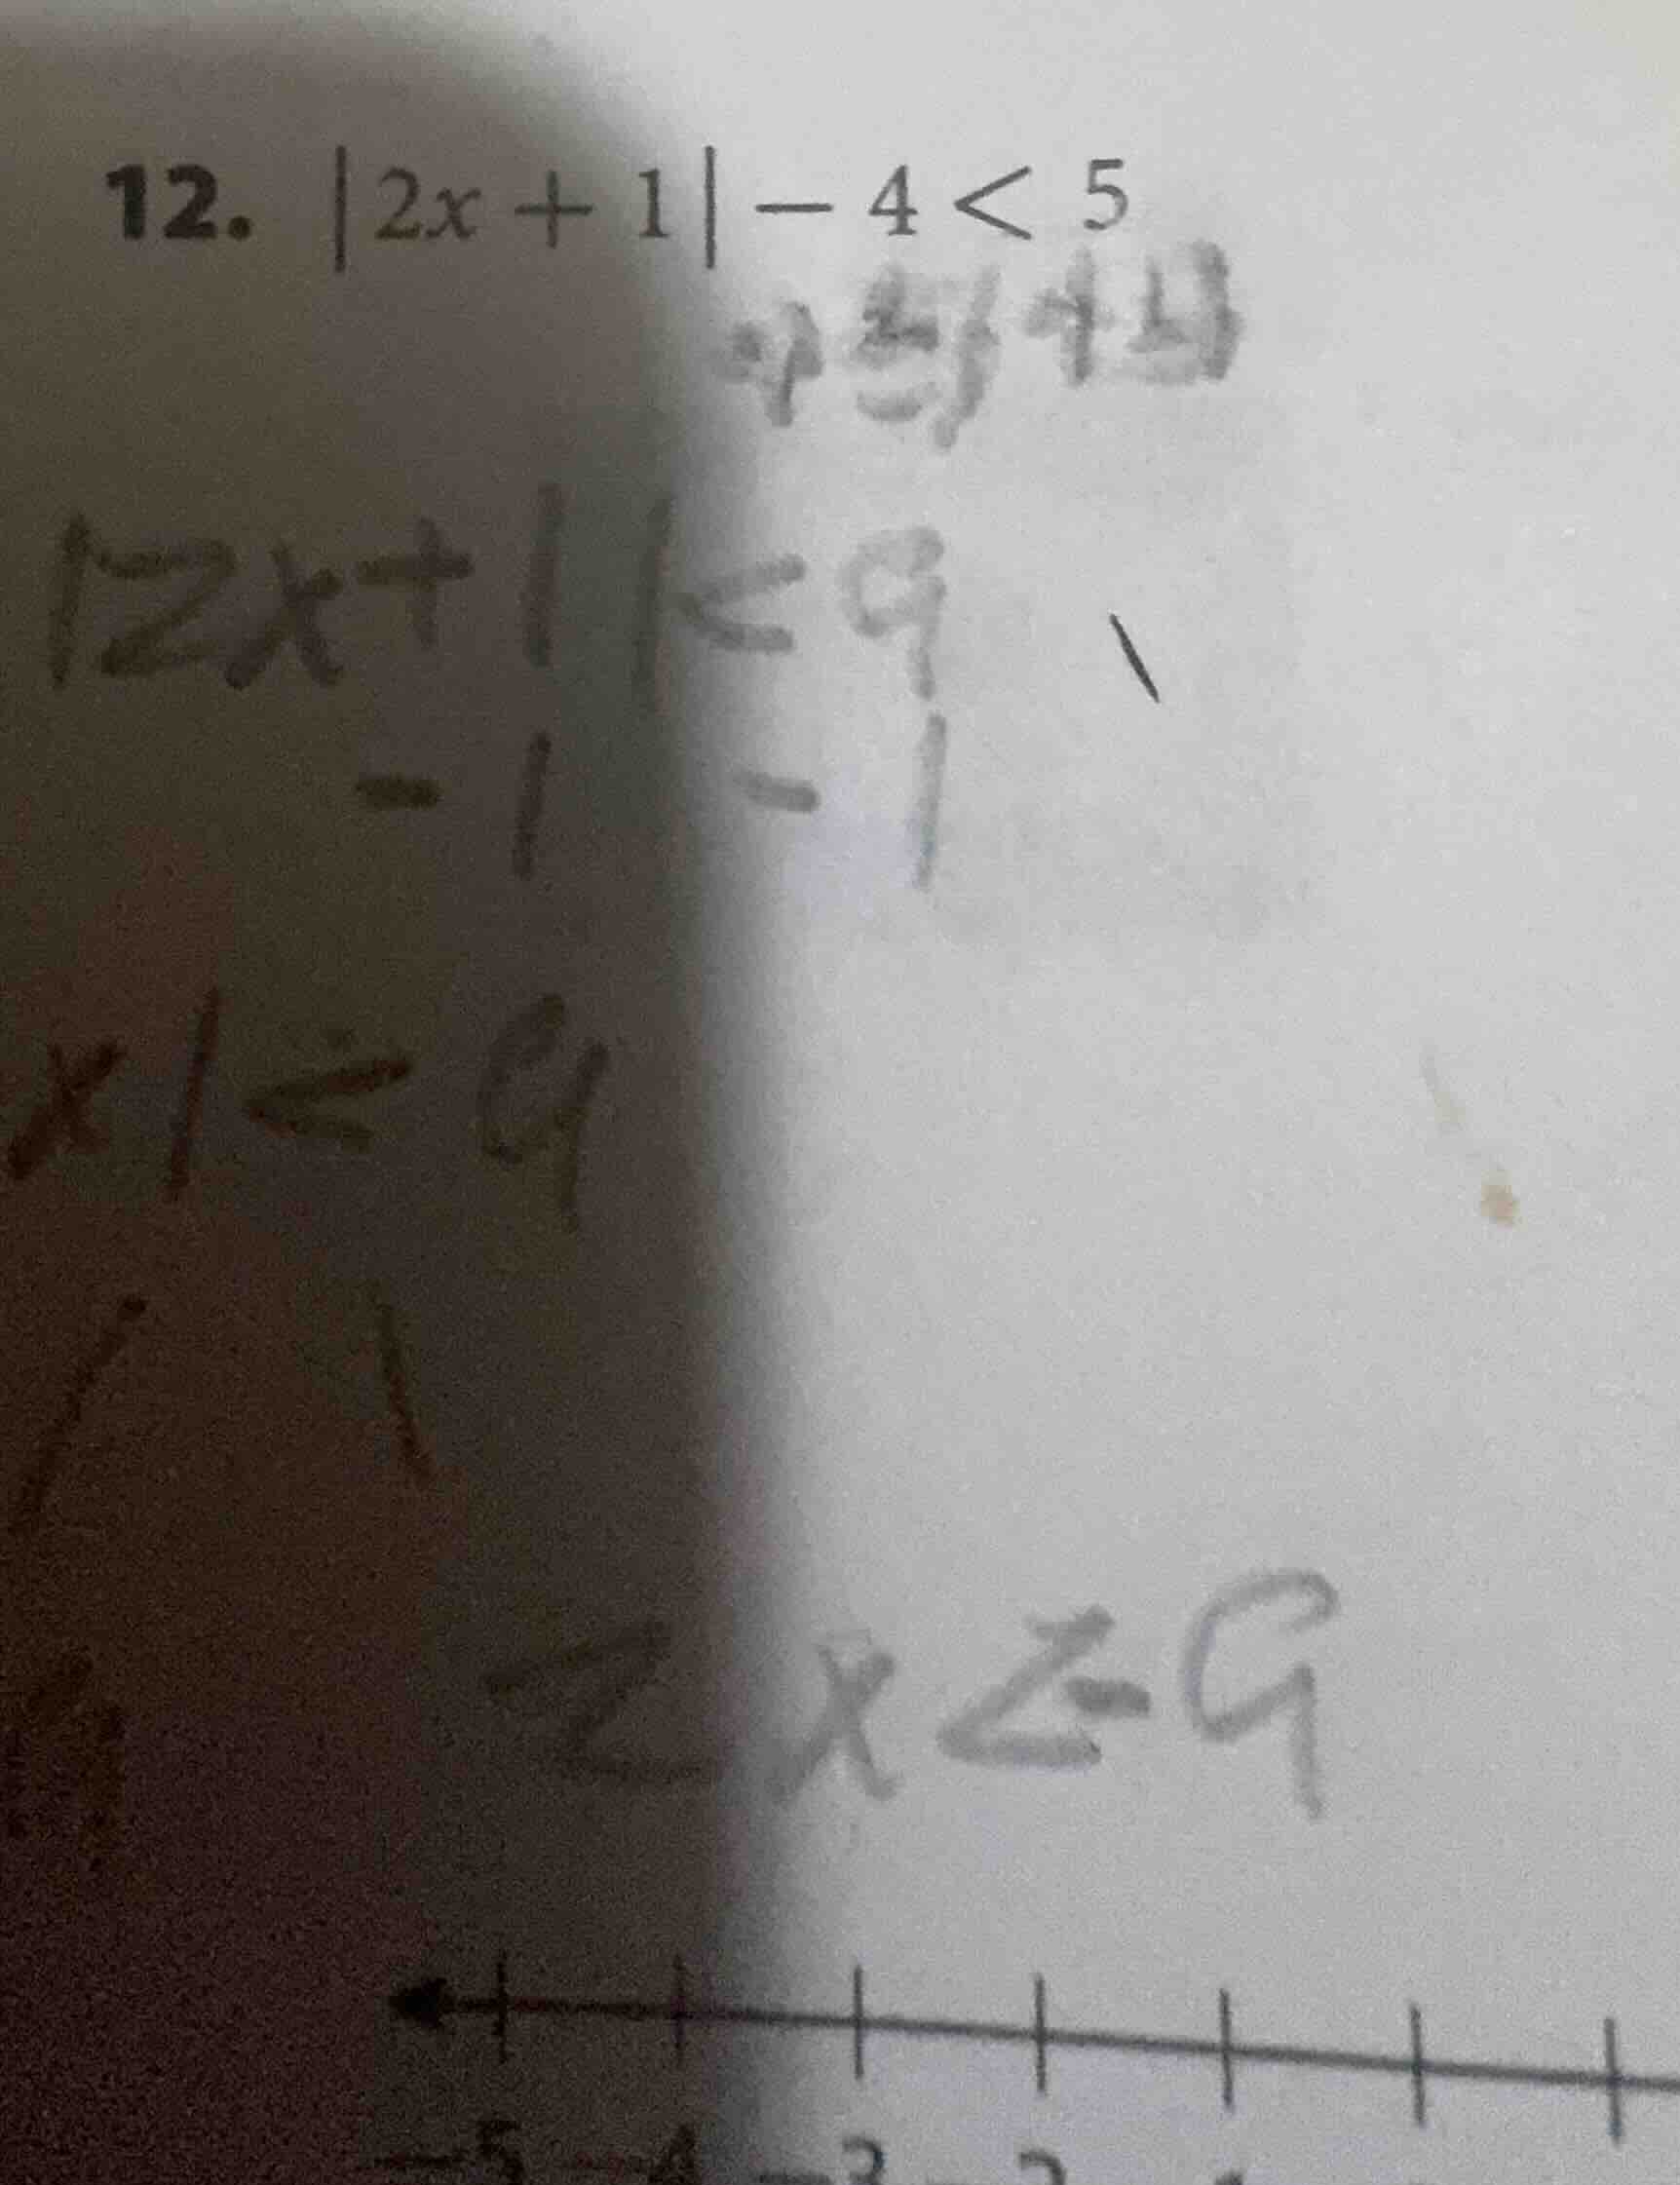 12. |2x + 1| − 4 < 5
|2x+1|<9
-1 -1
x|<9
2x<-9
-5 -4 -3